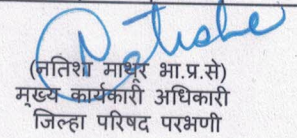 (नतिशा माथूर भा.प्र.से)
मुख्य कार्यकारी अधिकारी
जिल्हा परिषद परभणी